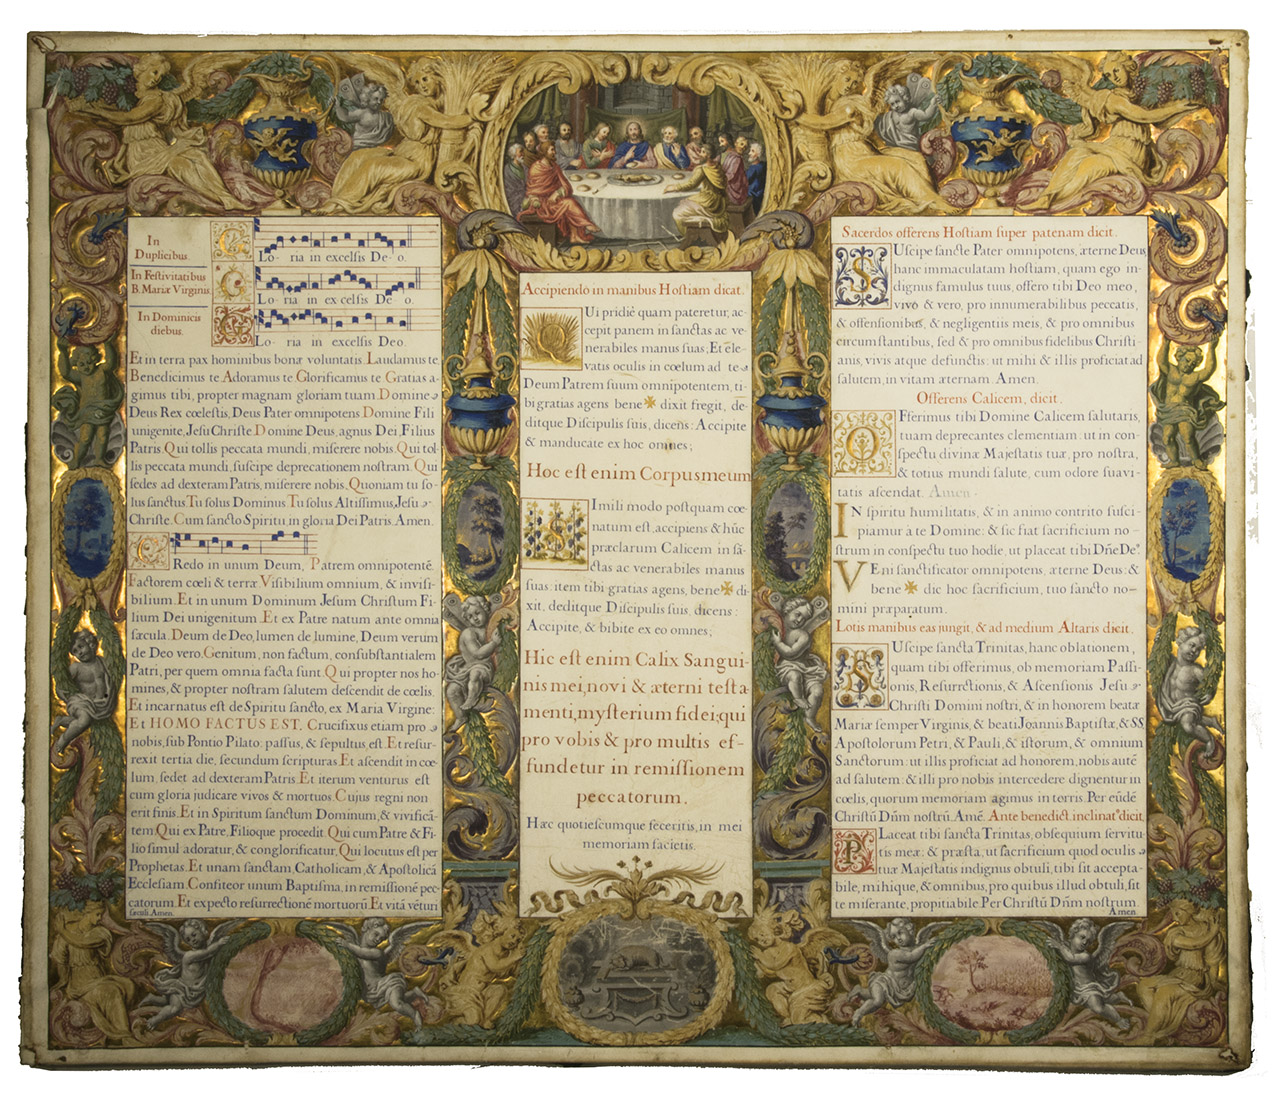 In
Duplicibus.
In Festivitatibus
B. Mariæ Virginis
In Dominicis
diebus.
G Lo- ria in excelsis De- o.
G Lo- ria in ex celsis De o.
G Lo- ria in excelsis Deo.
Et in terra pax hominibus bonæ voluntatis Laudamus te,
Benedicimus te Adoramus te Glorificamus te Gratias a-
gimus tibi, propter magnam gloriam tuam Domine
Deus Rex cœlestis, Deus Pater omnipotens Domine Fili
unigenite, Jesu Christe Domine Deus, agnus Dei Filius
Patris Qui tollis peccata mundi, miserere nobis Qui tol
lis peccata mundi, suscipe deprecationem nostram. Qui
sedes ad dexteram Patris, miserere nobis, Quoniam tu so-
lus sanctus Tu solus Dominus Tu solus Altissimus, Jesu
Christe. Cum sancto Spiritu, in gloria Dei Patris. Amen.
C Redo in unum Deum, Patrem omnipotentē.
Factorem cœli & terræ Visibilium omnium, & invisi-
bilium. Et in unum Dominum Jesum Christum Fi-
lium Dei unigenitum .Et ex Patre natum ante omnia
sæcula. Deum de Deo, lumen de lumine, Deum verum
de Deo vero. Genitum, non factum, consubstantialem
Patri, per quem omnia facta sunt Qui propter nos ho-
mines, & propter nostram salutem descendit de cœlis.
Et incarnatus est de Spiritu sancto, ex Maria Virgine:
Et HOMO FACTUS EST. Crucifixus etiam pro
nobis, sub Pontio Pilato: passus, & sepultus, est Et resur-
rexit tertia die, secundum scripturas Et ascendit in cœ
lum sedet ad dexteram Patris Et iterum venturus est
cum gloria judicare vivos & mortuos Cujus regni non
erit finis. Et in Spiritum sanctum Dominum, & vivificā-
tem Qui ex Patre, Filioque procedit. Qui cum Patre & Fi-
lio simul adoratur, & conglorificatur, Qui locutus est per
Prophetas Et unam sanctam, Catholicam, & Apostolicā
Ecclesiam Confiteor unum Baptisma, in remissionē pec-
catorum Et expecto resurrectionē mortuorū Et vitā vēturi
sæculi. Amen.
Accipiendo in manibus Hostiam dicat.
Q Ui pridiè quam pateretur, ac-
cepit panem in sanctas ac ve-
nerabiles manus suas, Et ele-
vatis oculis in cœlum ad te
Deum Patrem suum omnipotentem, ti-
bi gratias agens bene ✠ dixit fregit, de-
ditque Discipulis suis, dicens: Accipite
& manducate ex hoc omnes;
Hoc est enim Corpus meum
S Imili modo postquam cœ-
natum est, accipiens & hūc
præclarum Calicem in sā-
ctas ac venerabiles manus
suas: item tibi gratias agens, bene ✠ di-
xit, deditque Discipulis suis, dicens:
Accipite, & bibite ex eo omnes;
Hic est enim Calix Sangui-
nis mei, novi & æterni testa
menti, mysterium fidei; qui
pro vobis & pro multis ef-
fundetur in remissionem
peccatorum.
Hæc quotiescumque feceritis, in mei
memoriam facietis.
Sacerdos offerens Hostiam super patenam dicit.
S Uscipe sancte Pater omnipotens, æterne Deus,
hanc immaculatam hostiam, quam ego in-
dignus famulus tuus, offero tibi Deo meo,
vivo & vero, pro innumerabilibus peccatis,
& offensionibus, & negligentiis meis, & pro omnibus
circumstantibus, sed & pro omnibus fidelibus Christi-
anis, vivis atque defunctis: ut mihi & illis proficiat ad
salutem, in vitam æternam. Amen.
Offerens Calicem, dicit.
O Fferimus tibi Domine Calicem salutaris,
tuam deprecantes clementiam: ut in con-
spectu divinæ Majestatis tuæ, pro nostra,
& totius mundi salute, cum odore suavi-
tatis ascendat. Amen.
IN spiritu humilitatis, & in animo contrito susci-
piamur à te Domine: & sic fiat sacrificium no-
strum in conspectu tuo hodie, ut placeat tibi Dñe De⁹.
VEni sanctificator omnipotens, æterne Deus: &
bene ✠ dic hoc sacrificium, tuo sancto no-
mini præparatum.
Lotis manibus eas jungit, & ad medium Altaris dicit.
S Uscipe sancta Trinitas, hanc oblationem,
quam tibi offerimus, ob memoriam Passi-
onis, Resurrctionis, & Ascensionis Jesu
Christi Domini nostri, & in honorem beatæ
Mariæ semper Virginis, & beati Joannis Baptistæ, & SS.
Apostolorum Petri, & Pauli, & istorum, & omnium
Sanctorum: ut illis proficiat ad honorem, nobis autē
ad salutem: & illi pro nobis intercedere dignentur in
cœlis, quorum memoriam agimus in terris. Per eūdē
Christū Dūm nostrū. Amē. Ante benedict. inclinat⁹ dicit,
P Laceat tibi sancta Trinitas, obsequium servitu-
tis meæ: & præsta, ut sacrificium quod oculis
tuæ Majestatis indignus obtuli, tibi sit accepta
bile, mihique, & omnibus, pro quibus illud obtuli, sit
te miserante, propitiabile Per Christū Dūm nostrum.
Amen.